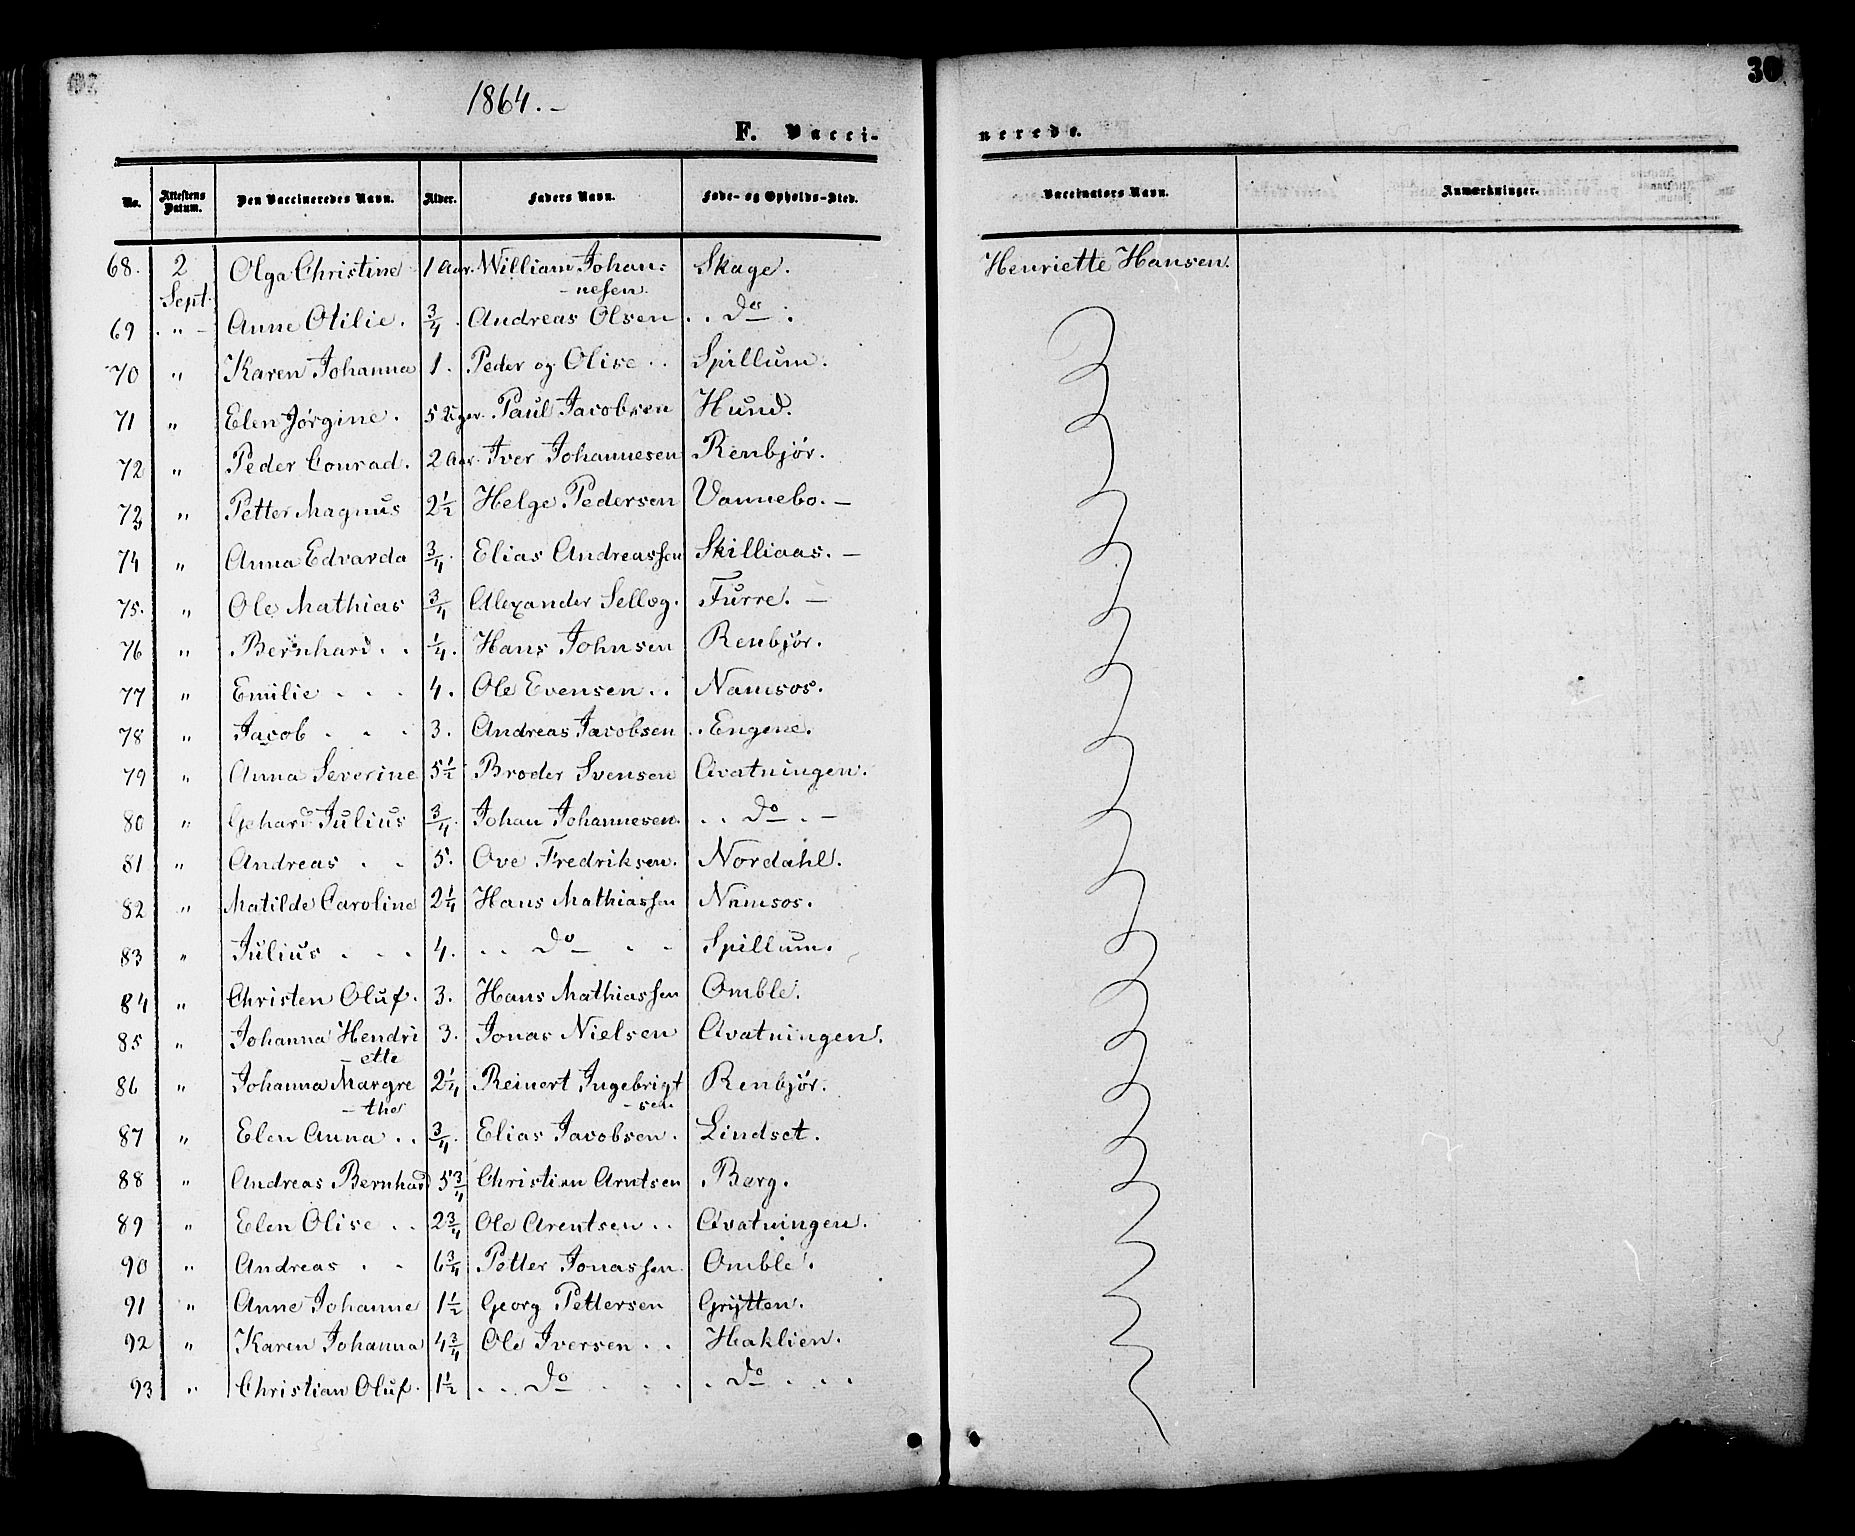 1864. –
30
F. Vacci-
nerede.
No. Attestens Datum. Den Vaccineredes Navn. Alder. Faders Navn. Føde- og Opholds-Sted. Vaccinators Navn. Anmærkninger.
68. 2 Sept. Olga Christine 1 Aar. William Johan- Skage. Henriette Hansen.
– nesen.
69 . " – Anne Otilie. 3/4. Andreas Olsen . . Do .
70 " Karen Johanna 1. Peder og Olise . . Spillum.
71 " Elen Jørgine. 5 Uger. Paul Jacobsen Hund.
72 " Peder Conrad. 2 Aar. Iver Johannesen Renbjør.
73 " Petter Magnus 2 1/2 Helge Pedersen Vannebo. –
74 " Anna Edvarda 3/4. Elias Andreassen Skilliaas. –
75. " Ole Mathias 3/4 Alexander Selløg. Furre. –
76 " Bernhard . . 1/4. Hans Johnsen Renbjør.
77 " Emilie . . . 4. Ole Evensen . . Namsos.
78 " Jacob . . . 3. Andreas Jacobsen . . Engene.
79 " Anna Severine 5 1/2 Broder Svensen Avatningen.
80 " Gehard Julius 3/4. Johan Johannesen. . . Do . –
81 " Andreas . . 5. Ove Fredriksen. Nordahl.
82 " Matilde Caroline 2 1/4 Hans Mathiassen Namsos.
83 " Julius . . . 4. . . Do . . Spillum.
84 " Christen Oluf. 3. Hans Mathiassen Omble.
85 " Johanna Hendri 3. Jonas Nielsen Avatningen.
– ette
86 " Johanna Margre 2 1/4 Reinert Ingebrigt Renbjør.
– the – sen
87 " Elen Anna . . 3/4. Elias Jacobsen. Lindset.
88 " Andreas Bernhard 5 3/4 Christian Arntsen Berg.
89 " Elen Olise . . 2 3/4 Ole Arentsen . . Avatningen.
90 " Andreas . . 6 3/4 Petter Jonassen. Omble.
91 " Anne Johanne 1 1/2 Georg Pettersen Grytten.
92 " Karen Johanna 4 3/4 Ole Iversen . . Haklien.
93 " Christian Oluf. 1 1/2 . . Do . . . . Do . . .